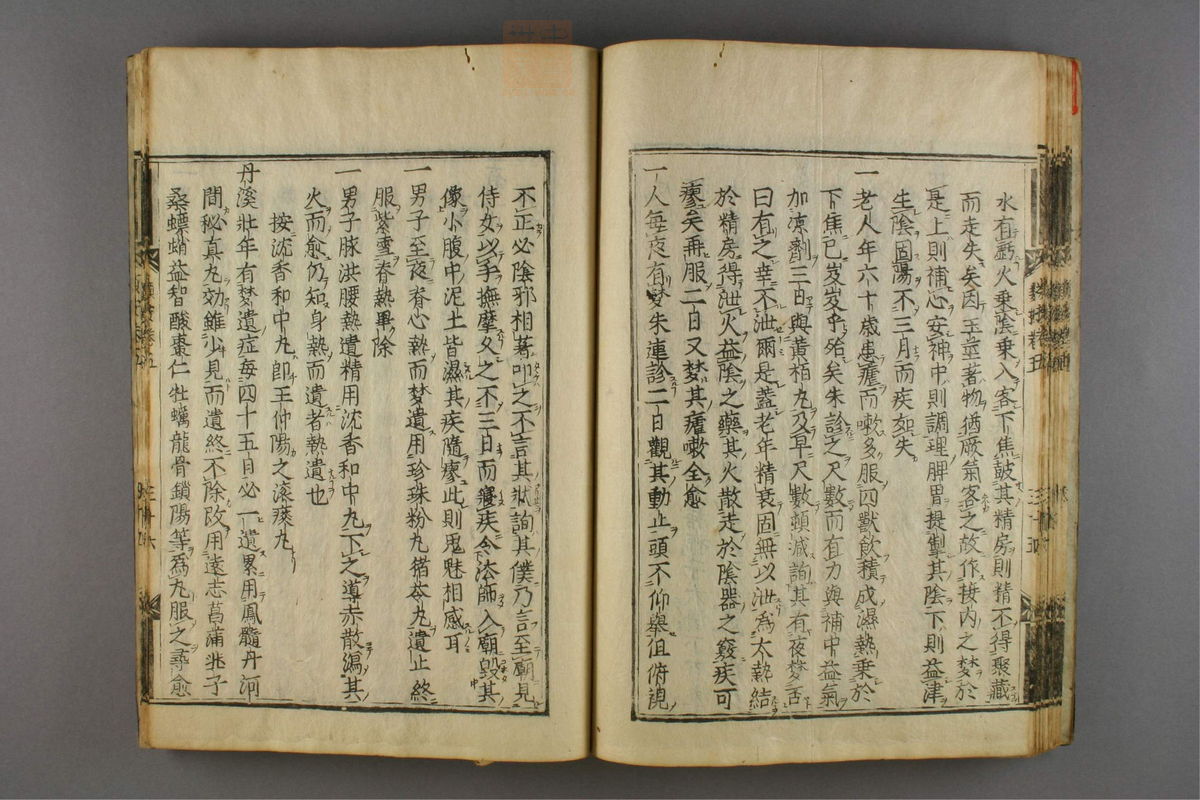 水有虧火乗陰乗入客下焦皷其精房則精不得聚藏
而走失矣因玉莖著物猶厥氣客之故作接内之梦於
是上則補心安神中則調理脾胃提掣其陰下則益津
生陰固陽不三月而疾如失
一老人年六十歳患瘧而嗽多服四獸飲積成濕熱乗於
下焦已岌岌乎殆矣朱診之尺數而有力與補中益氣
加凉劑三日與黄栢丸及早尺數頓減詢其有夜梦否
曰有之幸不泄爾是蓋老年精衰固無以泄為太熱結
於精房得泄火益陰之藥其火散走於陰器之竅疾可
瘳矣再服二日又梦其瘧嗽全愈
一人毎夜有梦朱連診二日觀其動止頭不仰舉但俯視
不正必陰邪相著叩之不言其狀詢其僕乃言至廟見
侍女以手撫摩久之不三日而寢疾令法師入廟毀其
像小腹中泥土皆濕其疾隨瘳此則鬼魅相感耳
一男子至夜脊心熱而梦遺用珍珠粉丸猪苓丸遺止終
服紫雪脊熱畢除
一男子脉洪腰熱遺精用沈香和中丸下之導赤散瀉其
火而愈仍知身熱而遺者熱遺也
按沈香和中丸即王仲陽之滚痰丸
丹溪壯年有梦遺症毎四十五日必一遺累用鳳髓丹河
間秘真丸効雖少見而遺終不除改用遠志菖蒲韭子
桑螵蛸益智酸棗仁牡蠣龍骨鎖陽等為丸服之尋愈